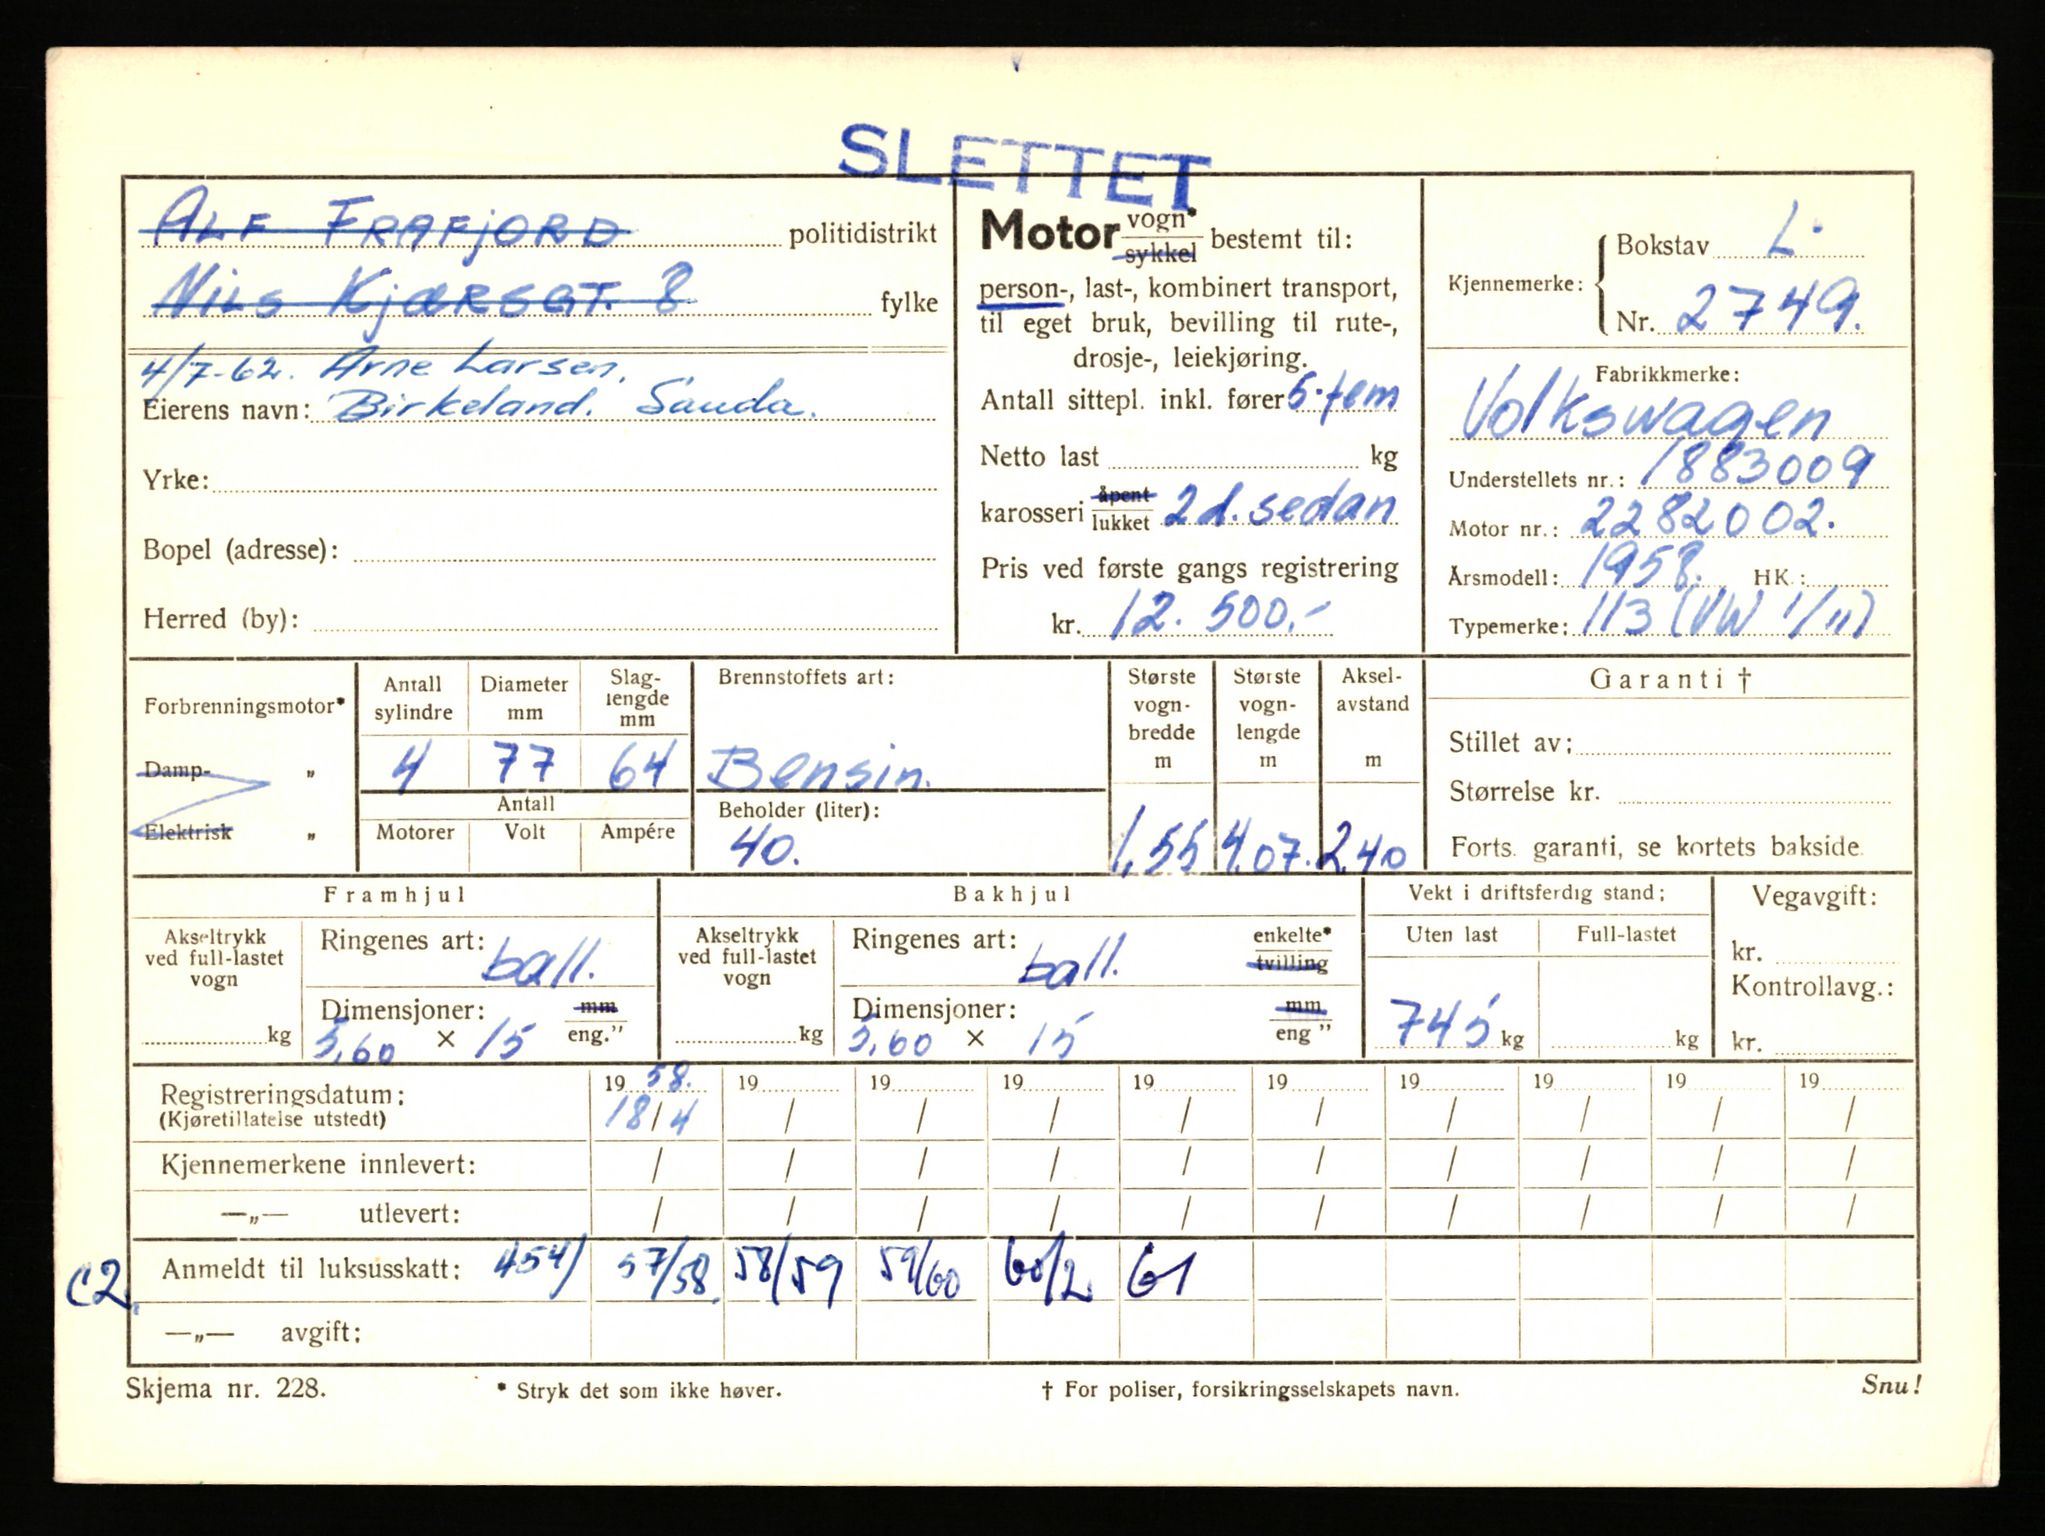 SLETTET
ALF FRAFJORD politidistrikt
NILS KJÆRSGT. 8 fylke
4/7-62. Arne Larsen,
Eierens navn: Birkeland. Sauda.
Yrke:
Bopel (adresse):
Herred (by):
Motor vogn* sykkel bestemt til:
person-, last-, kombinert transport,
til eget bruk, bevilling til rute-,
drosje-, leiekjøring.
Antall sittepl. inkl. fører 5. fem
Netto last kg
karosseri åpent lukket 2 d. sedan
Pris ved første gangs registrering
kr. 12.500,-
Kjennemerke: Bokstav L.
Nr. 2749.
Fabrikkmerke:
Volkswagen
Understellets nr.: 1883009
Motor nr.: 2282002.
Årsmodell: 1958. HK.:
Typemerke: 113 (VW 1/11)
Forbrenningsmotor*
Damp- „
Elektrisk „
Antall sylindre
Diameter mm
Slaglengde mm
4 77 64
Antall
Motorer Volt Ampére
Brennstoffets art:
Bensin.
Beholder (liter):
40.
Største vogn-bredde m
Største vogn-lengde m
Aksel-avstand m
1,55 4,07. 2,40
Garanti †
Stillet av:
Størrelse kr.
Forts. garanti, se kortets bakside.
Framhjul
Akseltrykk ved full-lastet vogn
kg
Ringenes art: ball.
Dimensjoner: mm
5,60 × 15 eng.”
Bakhjul
Akseltrykk ved full-lastet vogn
kg
Ringenes art: ball. enkelte* tvilling
Dimensjoner: mm
5,60 × 15 eng ”
Vekt i driftsferdig stand:
Uten last Full-lastet
745 kg kg
Vegavgift:
kr.
Kontrollavg.:
kr.
Registreringsdatum: 19 58. 19 19 19 19 19 19 19 19 19
(Kjøretillatelse utstedt) 18/4 / / / / / / / / /
Kjennemerkene innlevert: / / / / / / / / / /
—„— utlevert: / / / / / / / / / /
C2. Anmeldt til luksusskatt: 454/ 57/58. 58/59 59/60 60/2. 61
—„— avgift:
Skjema nr. 228. * Stryk det som ikke høver. † For poliser, forsikringsselskapets navn. Snu!